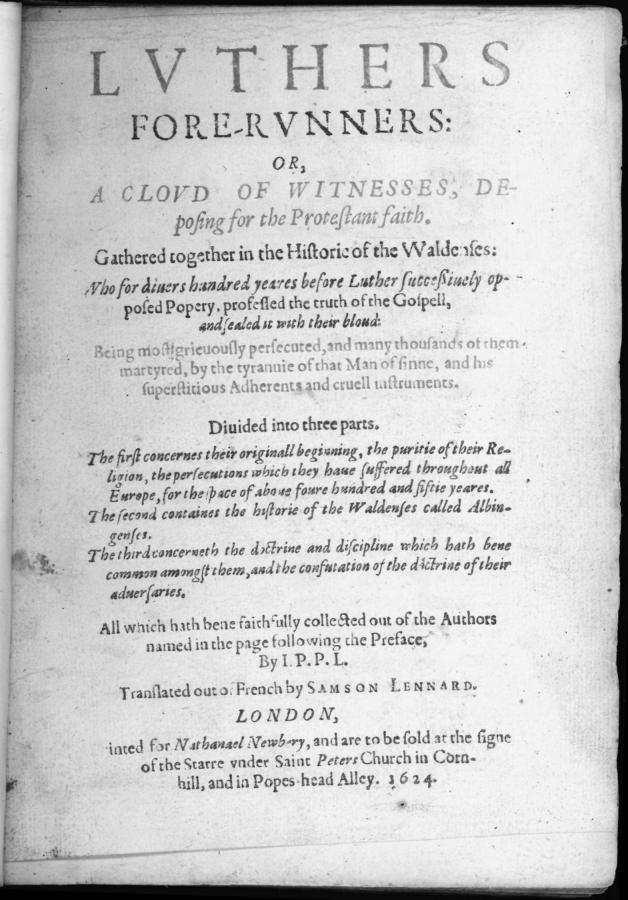 LVTHERS
FORE-RVNNERS:
OR,
A CLOVD OF WITNESSES, DE-
poſing for the Proteſtant faith.
Gathered together in the Hiſtorie of the Waldenſes:
Who for diuers hundred yeares before Luther ſucceſſiuely op-
poſed Popery, profeſſed the truth of the Goſpell,
and ſealed it with their bloud:
Being moſt grieuouſly perſecuted, and many thouſands of them
martyred, by the tyrannie of that Man of ſinne, and his
ſuperſtitious Adherents and cruell inſtruments.
Diuided into three parts.
The firſt concernes their originall beginning, the puritie of their Re-
ligion, the perſecutions which they haue ſuffered throughout all
Europe, for the ſpace of aboue foure hundred and fiftie yeares.
The ſecond containes the hiſtorie of the Waldenſes called Albin-
genſes.
The third concerneth the doctrine and diſcipline which hath bene
common amongſt them, and the confutation of the doctrine of their
aduerſaries.
All which hath bene faithfully collected out of the Authors
named in the page following the Preface,
By I. P. P. L.
Tranſlated out of French by SAMSON LENNARD.
LONDON,
inted for Nathanael Newbery, and are to be ſold at the ſigne
of the Starre vnder Saint Peters Church in Corn-
hill, and in Popes-head Alley. 1624.